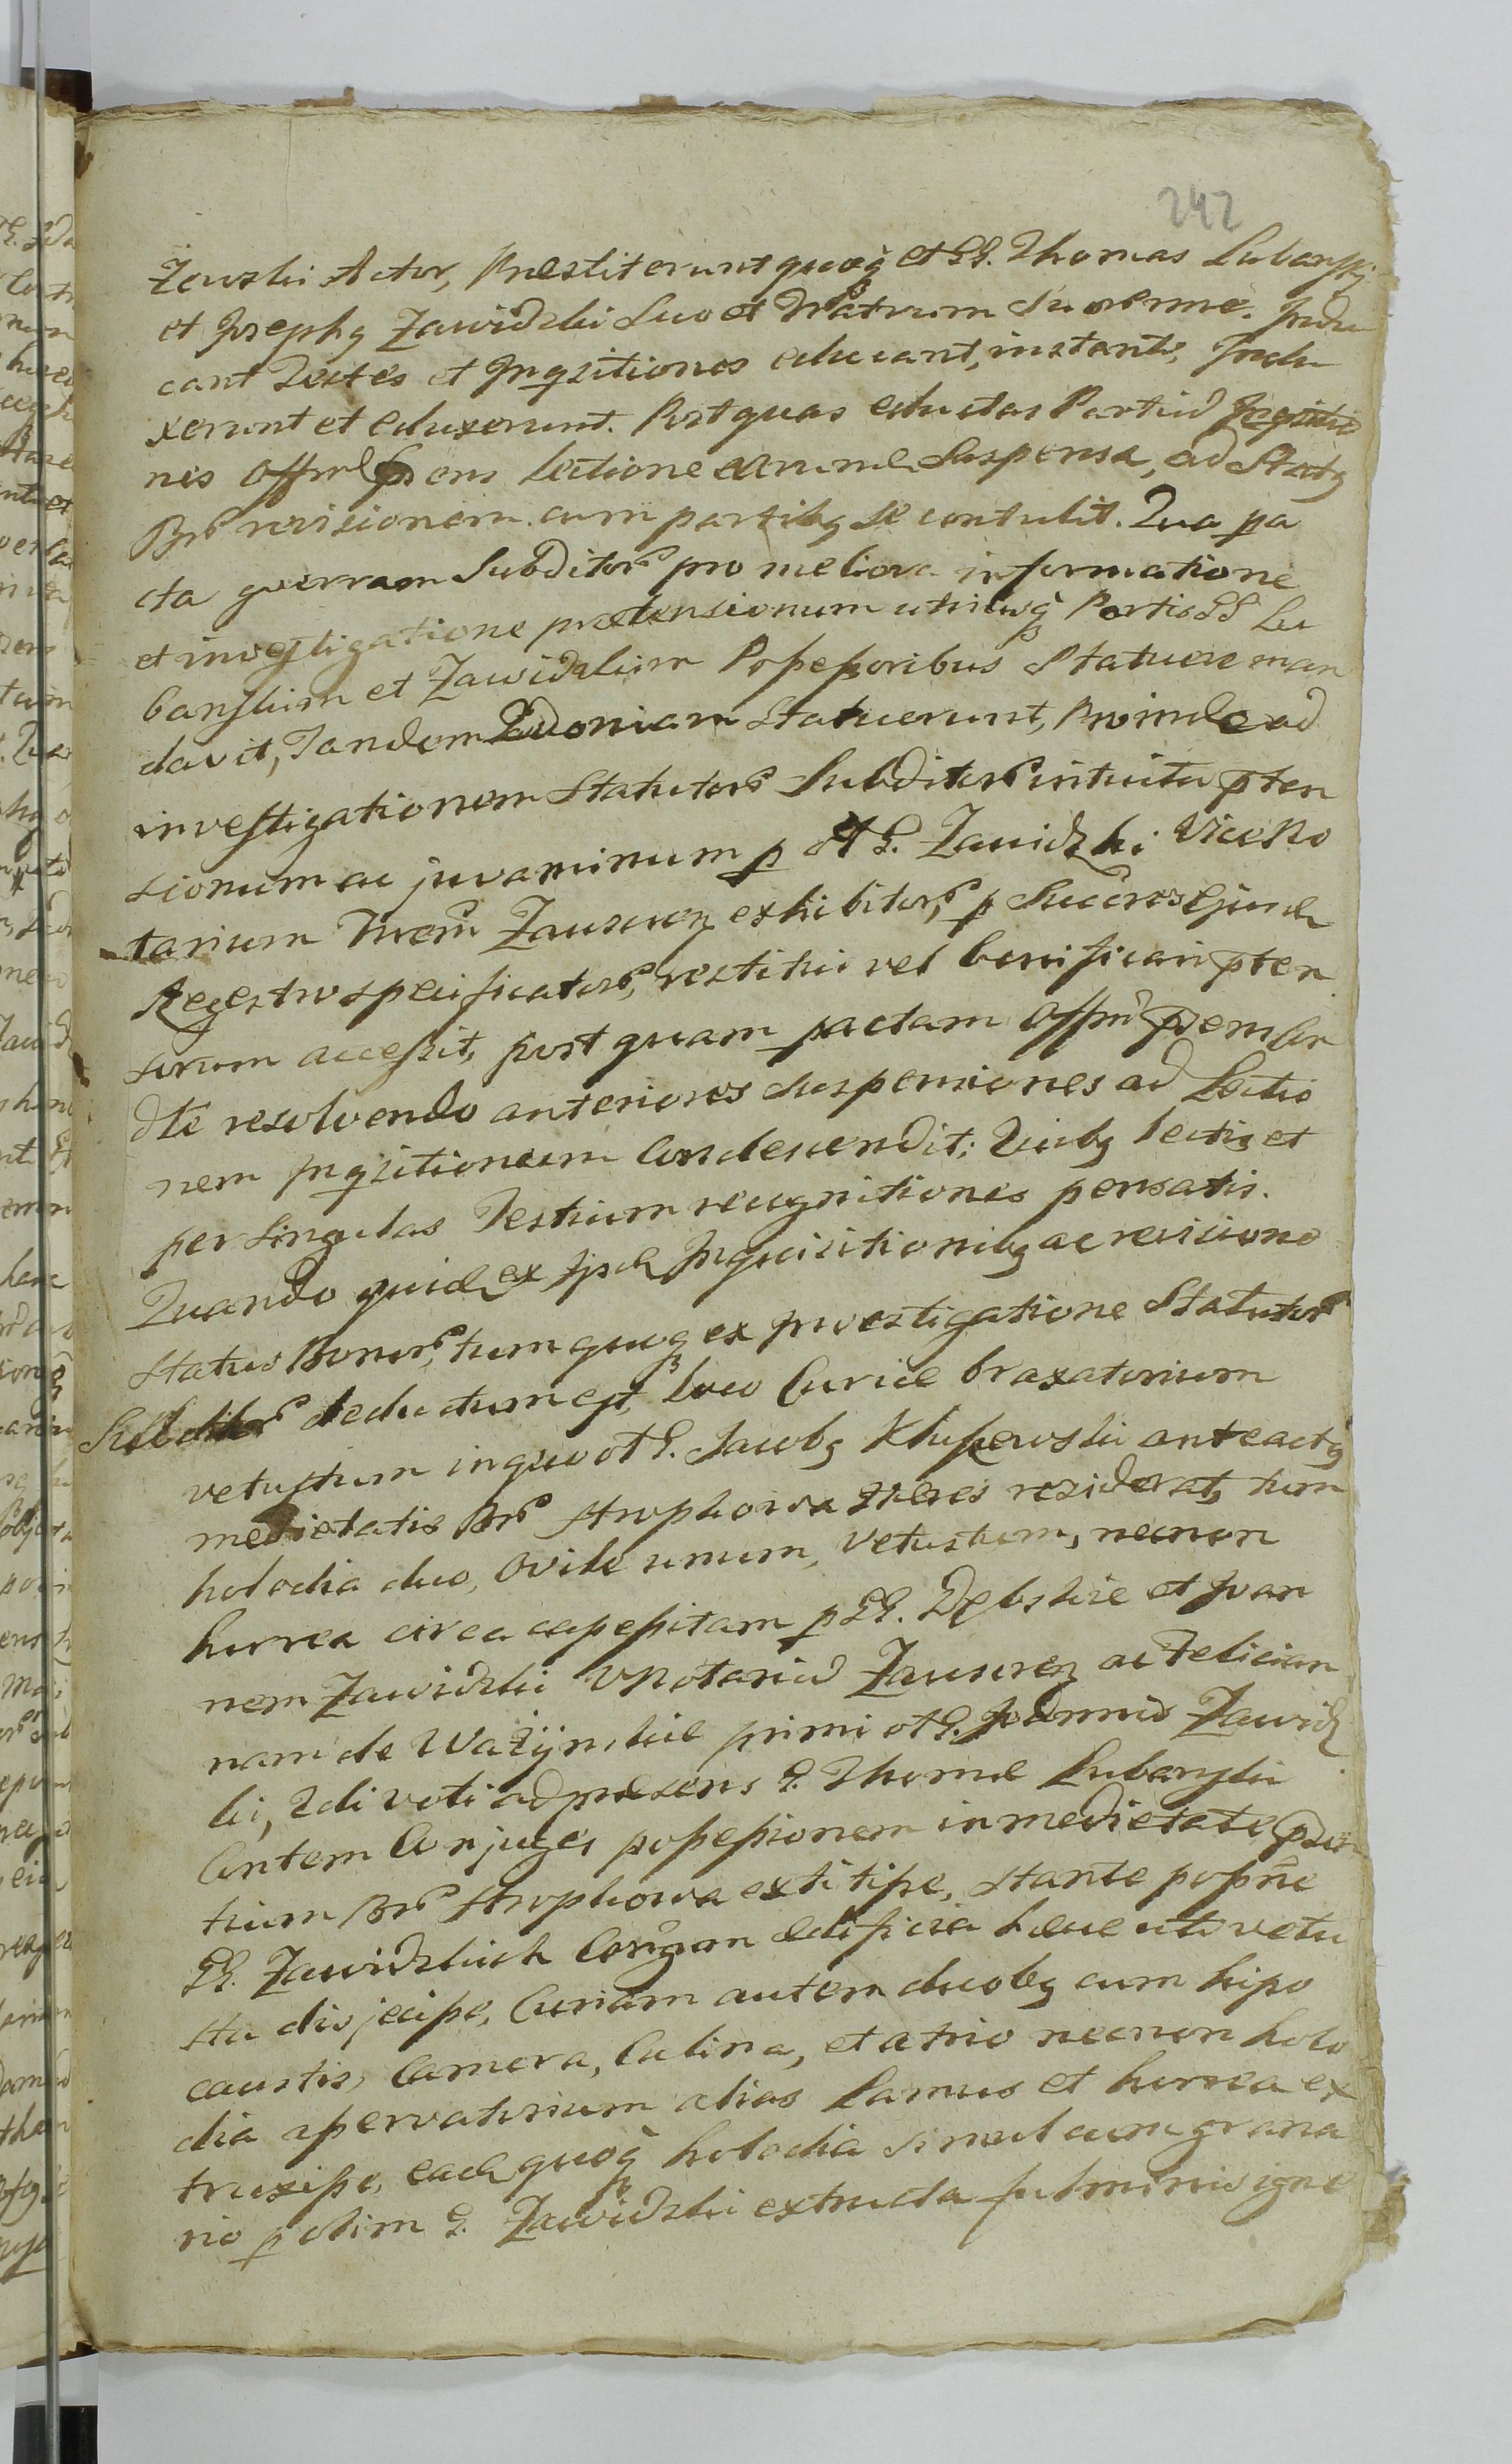 242
żewski Actor, Praestiterunt quoq et GG. Thomas Lubanskj
et Josephq Zawidzki Suo et Fratrum Suor nne. Indu
cant Testes et Inqsitiones educant, instante, Indu
xerunt et eduxerunt. Post quas eductas Partiu Inqsitio
nes Offm pns lectione earum Suspensa, ad Statq
Br revisionem cum partibq se contulit. Qua pa
cta quorram Subditor pro meliori informatione
et investigatione praetensionum utriusq Partis GG Lu
banskim et Zawidzkim Possessoribus Statuere man
davit, Tandem Statuerunt, Proinde ad
investigationem Statutor Subditor intuitu pten
sionum ac juvaminum p ol G. Zawidzki ViceNo
tarium Zauscen exhibitor, p Succres Ejusd
Regestro specificator, restitui vel bonificari pten
sorum accessit, post quam pactam Offm
dte resolvendo anteriores suspensiones ad Lectio
nem Inqsitionum Condescendit; Quibq lectis et
per Singulas Testium recognitiones pensatis.
Quando quid ex ipsis Inquisitionibq ac revisione
Status Bonor, tum quoq ex Investigatione Statutor
Subditor deductum est, loco Curiae braxatorium
vetustum in quo ol G. Jacobq Klupewski anteactq
medietatis Br Stroplowa Haeres residerat, tum
holodia duo, Ovile unum, Vetustum, necnon
horrea circa accessitam p GG. Dębskie et Joan
nem Zawidzki VNotariu Zauscen ac Felician
nam de Ważyńskie primi ol G. Joannis Zawidz
ki, 2di voti ad praesens G. Thomae Lubanski
Contem Conjuges possessionem in medietate
tium Br Stroplowa extitisse, stante possne
GG. Zawidzkich Conjugum aedificia haec uti vetu
sta disjecisse, Curiam autem duobq cum hipo
caustis, Camera, Culina, et atrio necnon holo
dia spervatorium alias Lamus et horrea ex
truxisse, ead quoq holodia simul cum grana
rio p olim G. Zawidzki extructa fulminis igne